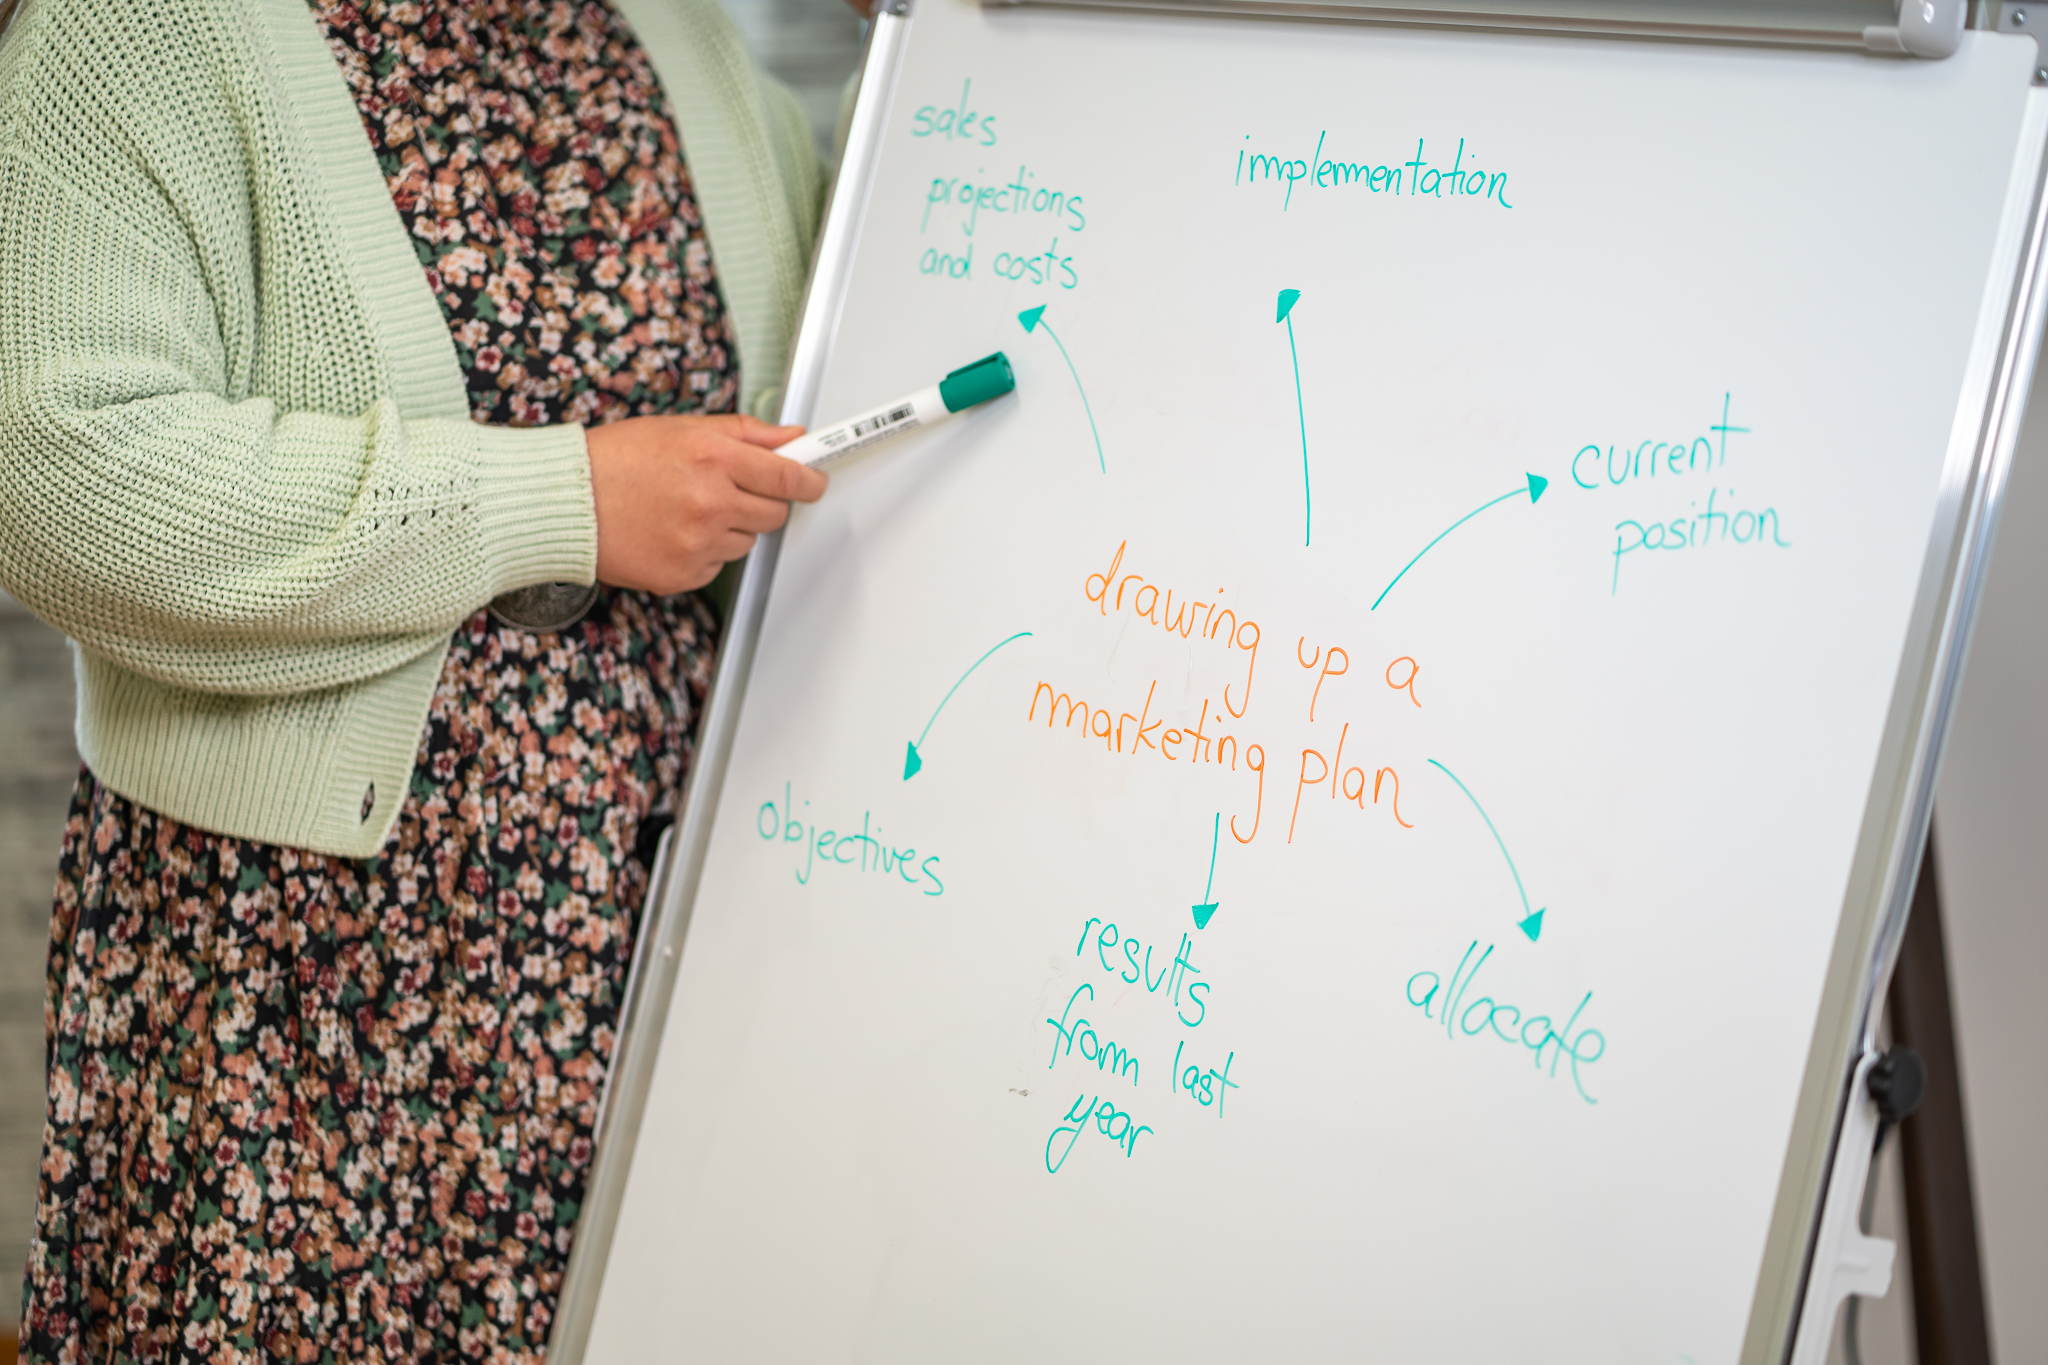 sales
projections
and costs
implementation
current
position
drawing up a
marketing plan
objectives
results
from last
year
allocate